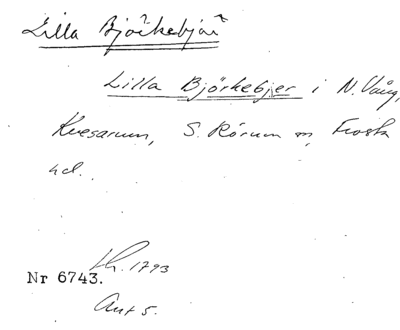 Lilla Björkebjär
Lilla Björkebjer i N. Vång,
Kvesarum, S. Rörum sn, Frosta
hd.
Lh. 1793
Nr 6743.
Akt 5.